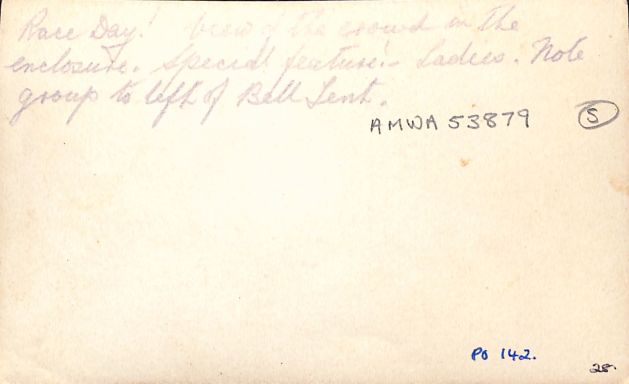 Race Day! View of the crowd in the
enclosure. Special feature:- Ladies. Note
group to left of Bell Tent.
AMWA 53879 S
PO 142.
28.